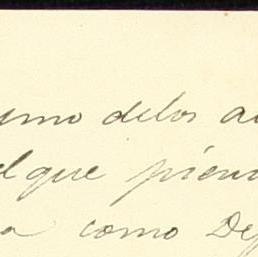 umo delos a
el que piens
a como Dep